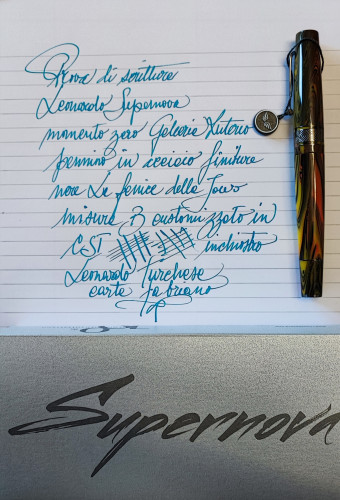 Prova di scrittura
Leonardo Supernova
momento zero Galassia Universo
pennino in acciaio finitura
nera La fenice della Jowo
misura B customizzato in
CSI inchiostro
Leonardo Turchese
carta fabriano
Supernova